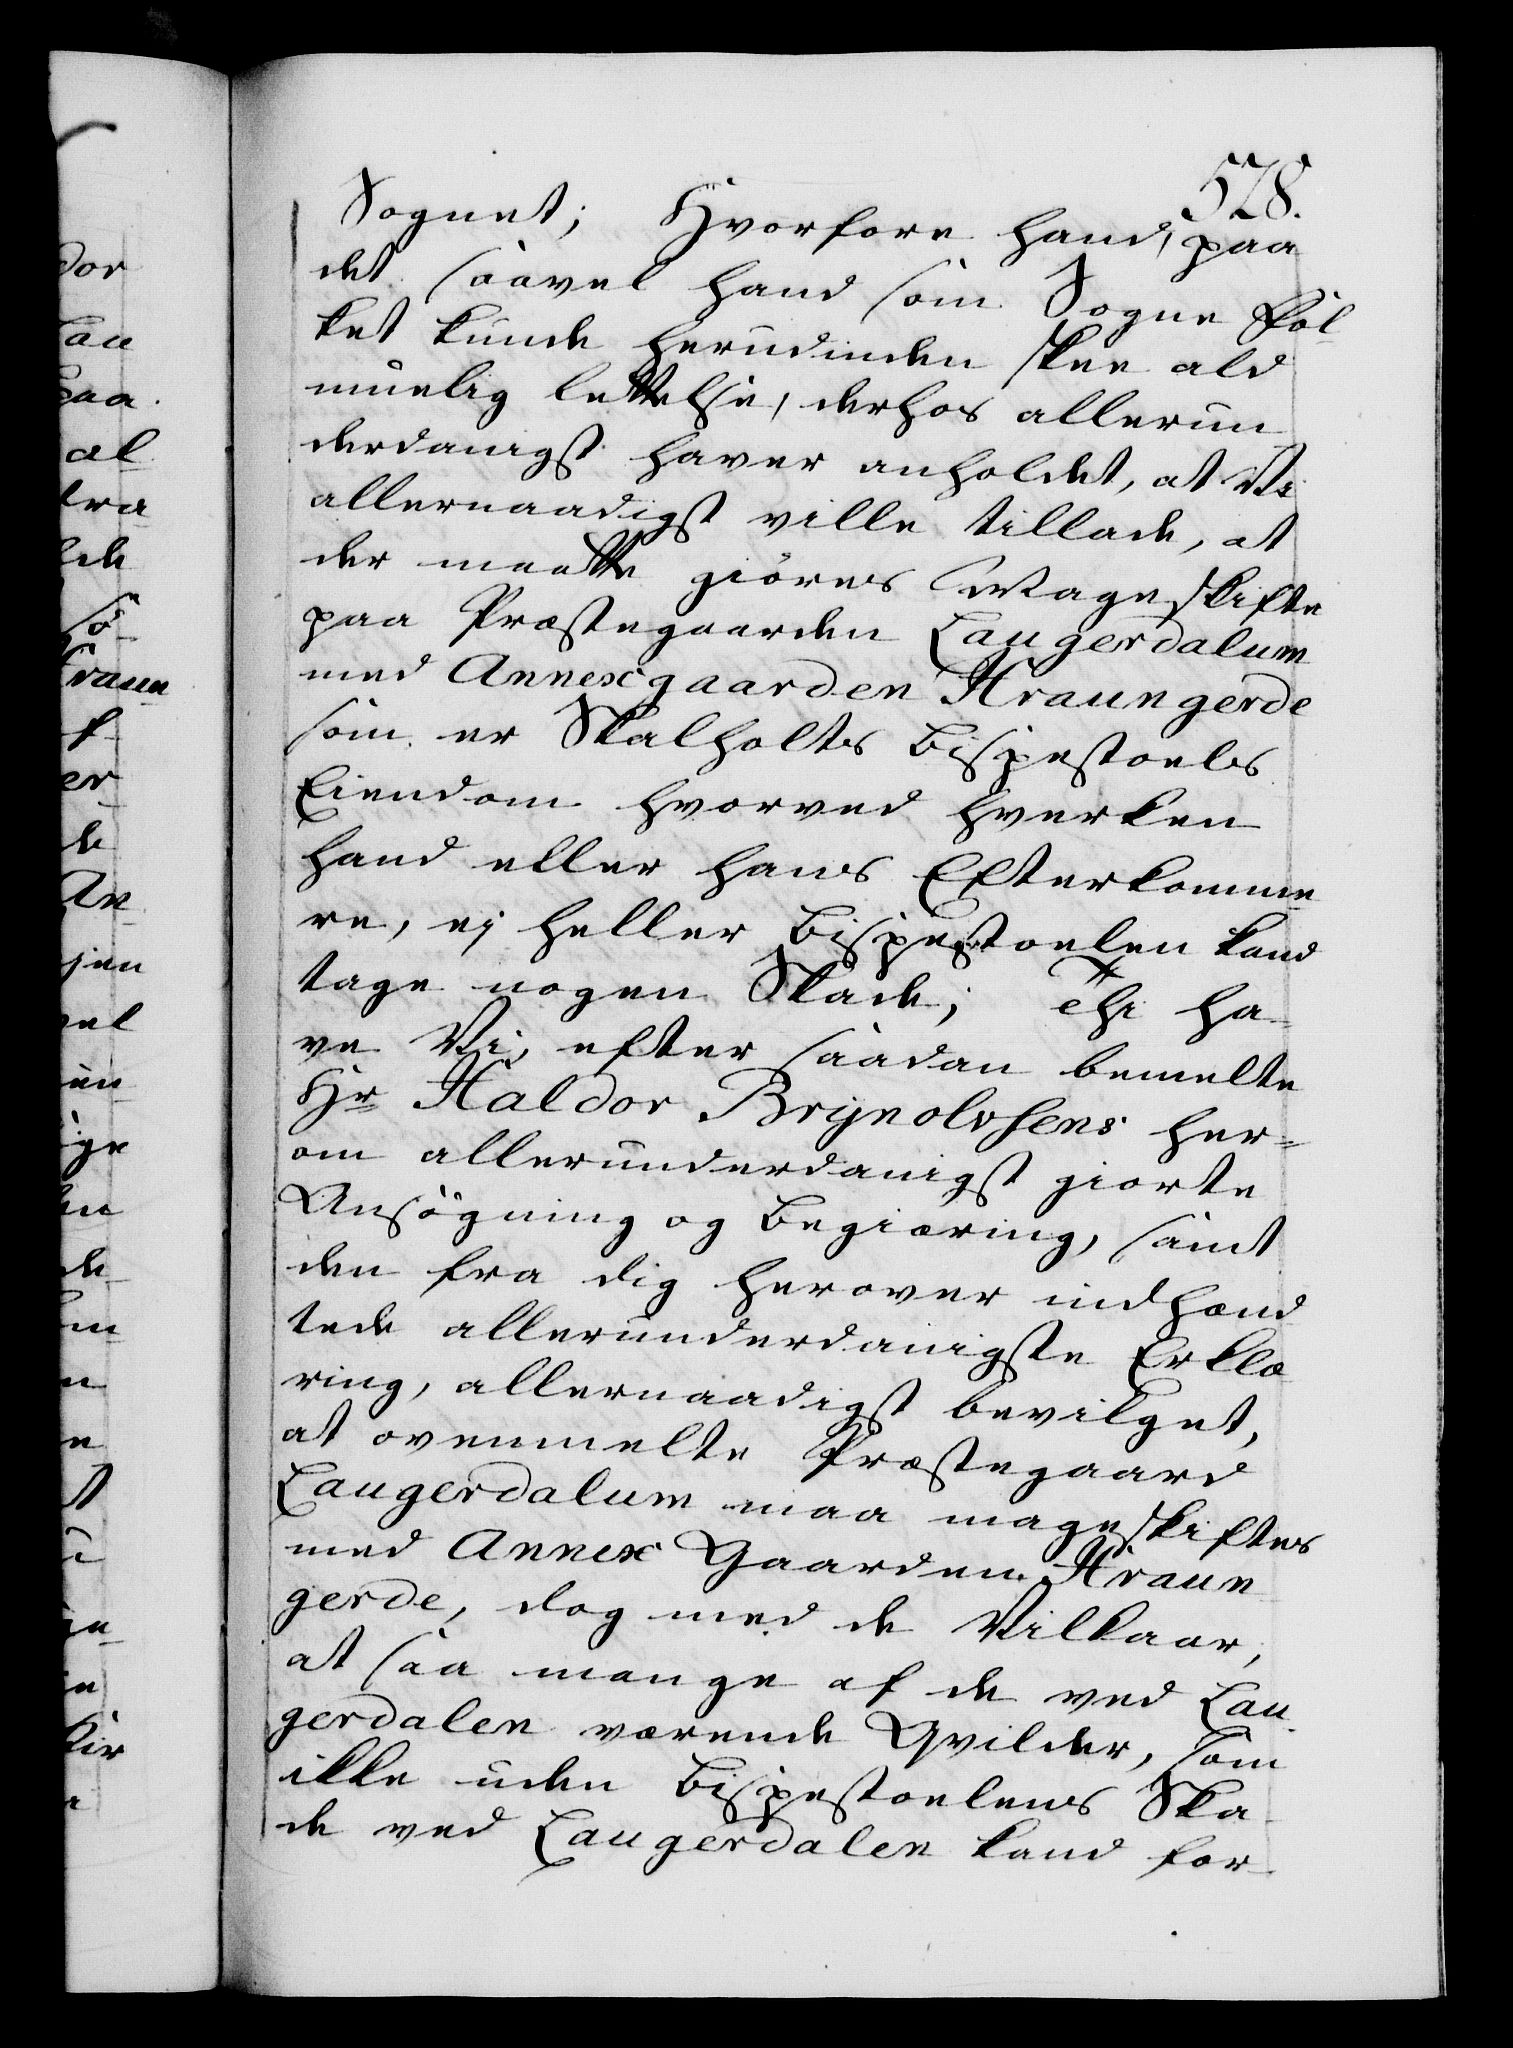 578.
Sognet; Hvorfore hand, paa
det saavel hand som Sogne Fol-
ket kunde herudinden skee ald
muelig lettelse, derhos allerun
derdanigst haver anholdet, at Vi
allernaadigst ville tillade, at
der maatte giöres Mageskifte
paa Præstegaarden Laugerdalum
med Annexgaarden Hraungerde
som er Skalholts Bispestoels
Eiendom hvorved hverken
hand eller hans Efterkomme-
re, ej heller Bispestoelen kand
tage nogen Skade; Thi ha-
ve Vi, efter saadan bemelte
Hr Haldor Brijnolvsens her-
om allerunderdanigst giorte
Ansögning og Begiæring, samt
den fra dig herover indhæn
tede allerunderdanigste Erklæ
ring, allernaadigst bevilget,
at ovenmelte Præstegaard
Laugerdalum maa mageskiftes
med Annex Gaarden Hraun
gerde, dog med de Vilkaar,
at saa mange af de ved Lau-
gerdalen værende Qvilder, som
ikke uden Bispestoelens Ska-
de ved Laugerdalen kand for-